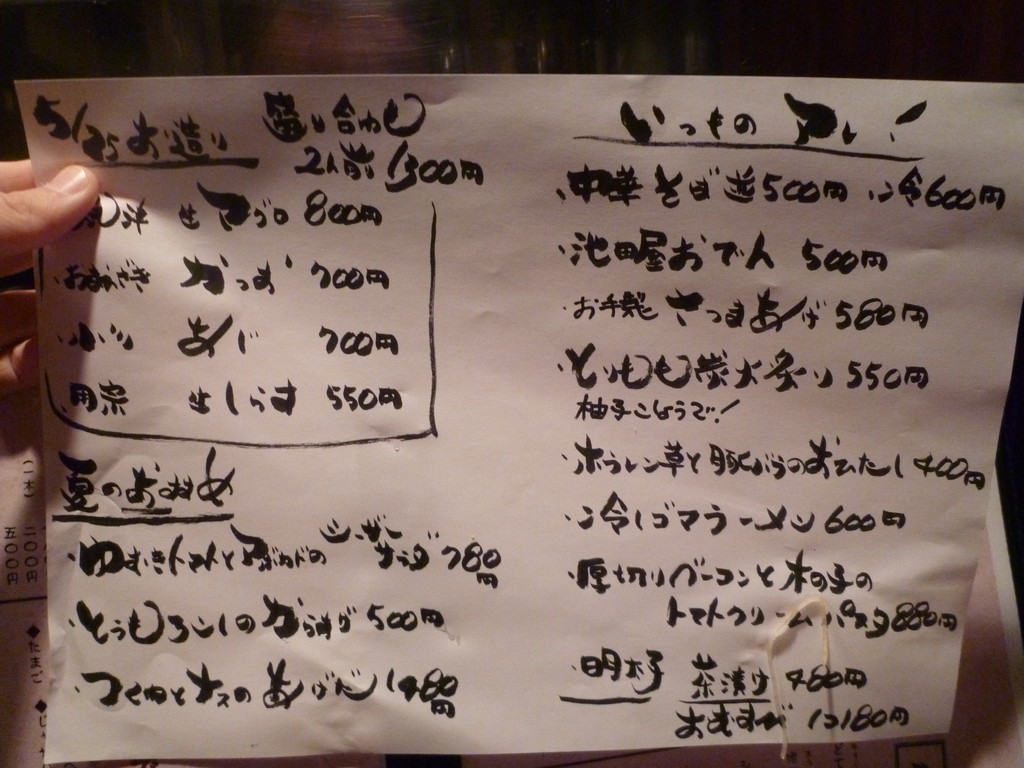 5/25 お造り
盛り合わせ
2人前 1300円
生マグロ 800円
・おまえざき かつお 700円
・小川 あじ 700円
・用宗 生しらす 550円
夏のおすすめ
・ゆむきトマトとアボカドの シーザーサラダ 780円
・とうもろこしのから揚げ 500円
・つくねとナスのあげだし 480円
いつものアレ!
・中華そば 並500円 冷600円
・池田屋おでん 500円
・お手製 さつまあげ 580円
・とりもも炭火炙り 550円
柚子こしょうで!
・ホウレン草と豚バラのおひたし 400円
・冷しゴマラーメン 600円
・厚切りベーコンと木の子の
トマトクリームパスタ 880円
・明太子 茶漬け 480円
おむすび 1コ180円
(一本)
二〇〇円
五〇〇円
◆たまご